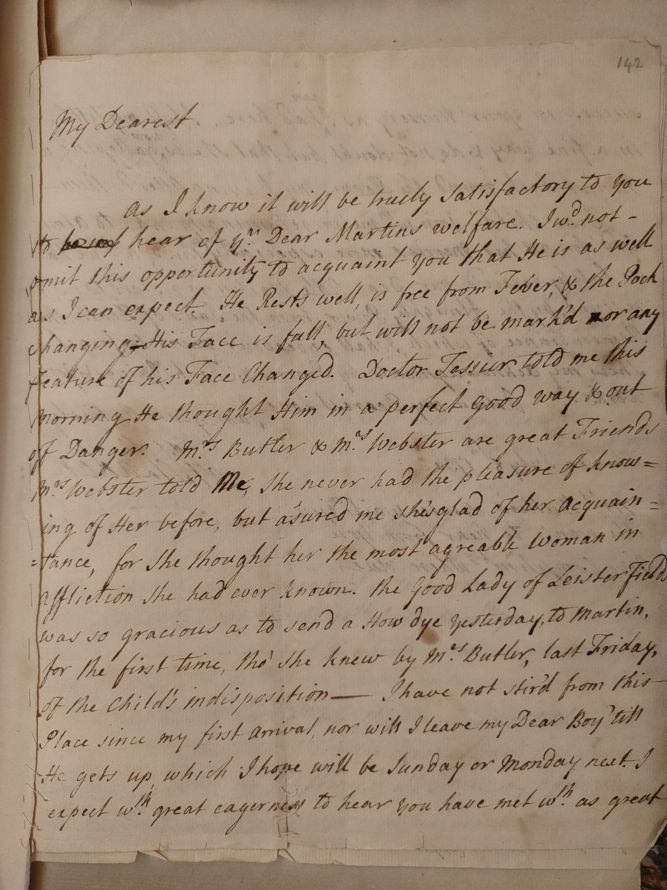 142
My Dearest
As I know it will be truly Satisfactory to you
to hear of yr. Dear Martins welfare. I wd. not -
omit this opportunity to acquaint you that He is as well
as I can expect. He Rests well, is free from Fever, & the Pock
changing. His Face is full, but will not be mark'd nor any
feature of his Face Changed. Doctor Tessier told me this
morning He thought Him in a perfect good way & out
of Danger. Mrs. Butler & Mrs. Webster are great Friends
Mrs. Webster told Me, She never had the pleasure of know=
ing of Her before, but asured me she's glad of her acquain=
=tance, for She thought her the most agreable Woman in
affliction She had ever known. the good Lady of Leister Fields
was so gracious as to send a How dye yesterday, to Martin,
for the first time, tho' she knew by Mrs. Butler, last Friday,
of the Child's indisposition — I have not stir'd from this
Place since my first arrival, nor will I leave my Dear Boy 'till
He gets up which I hope will be Sunday or Monday next. I
expect wth. great eagerness to hear you have met wth. as great